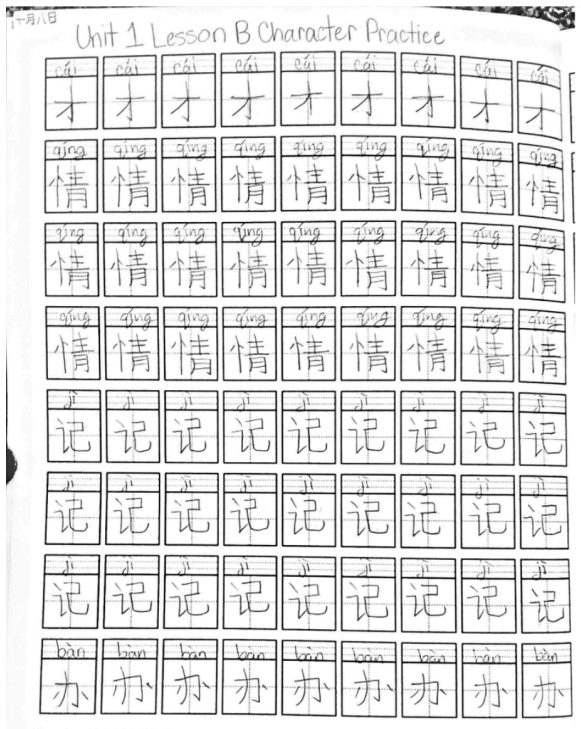 十月八日
Unit 1 Lesson B Character Practice
cái cái cái cái cái cái cái cái cái
才 才 才 才 才 才 才 才 才
qíng qíng qíng qíng qíng qíng qíng qíng qíng
情 情 情 情 情 情 情 情 情
qíng qíng qíng qíng qíng qíng qíng qíng qíng
情 情 情 情 情 情 情 情 情
qíng qíng qíng qíng qíng qíng qíng qíng qíng
情 情 情 情 情 情 情 情 情
jì jì jì jì jì jì jì jì jì
记 记 记 记 记 记 记 记 记
jì jì jì jì jì jì jì jì jì
记 记 记 记 记 记 记 记 记
jì jì jì jì jì jì jì jì jì
记 记 记 记 记 记 记 记 记
bàn bàn bàn bàn bàn bàn bàn bàn bàn
办 办 办 办 办 办 办 办 办